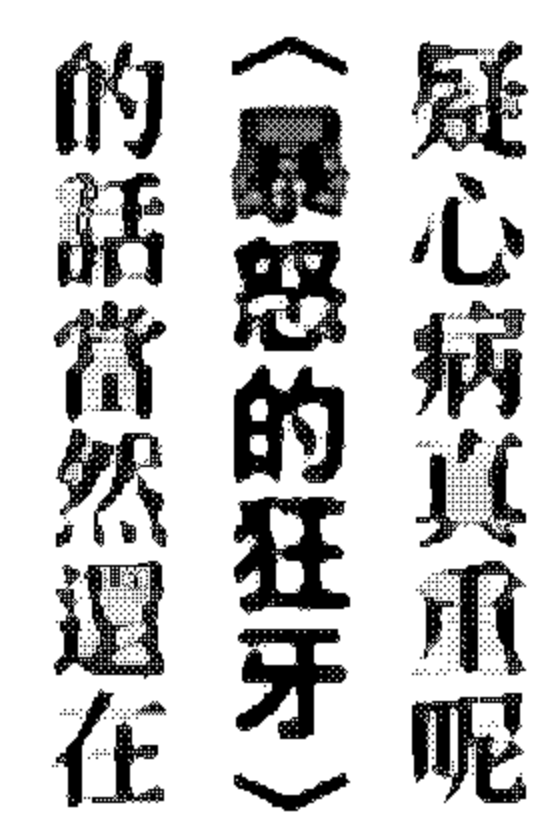 疑心病真呢
〈暴怒的狂牙〉
的話當然還在